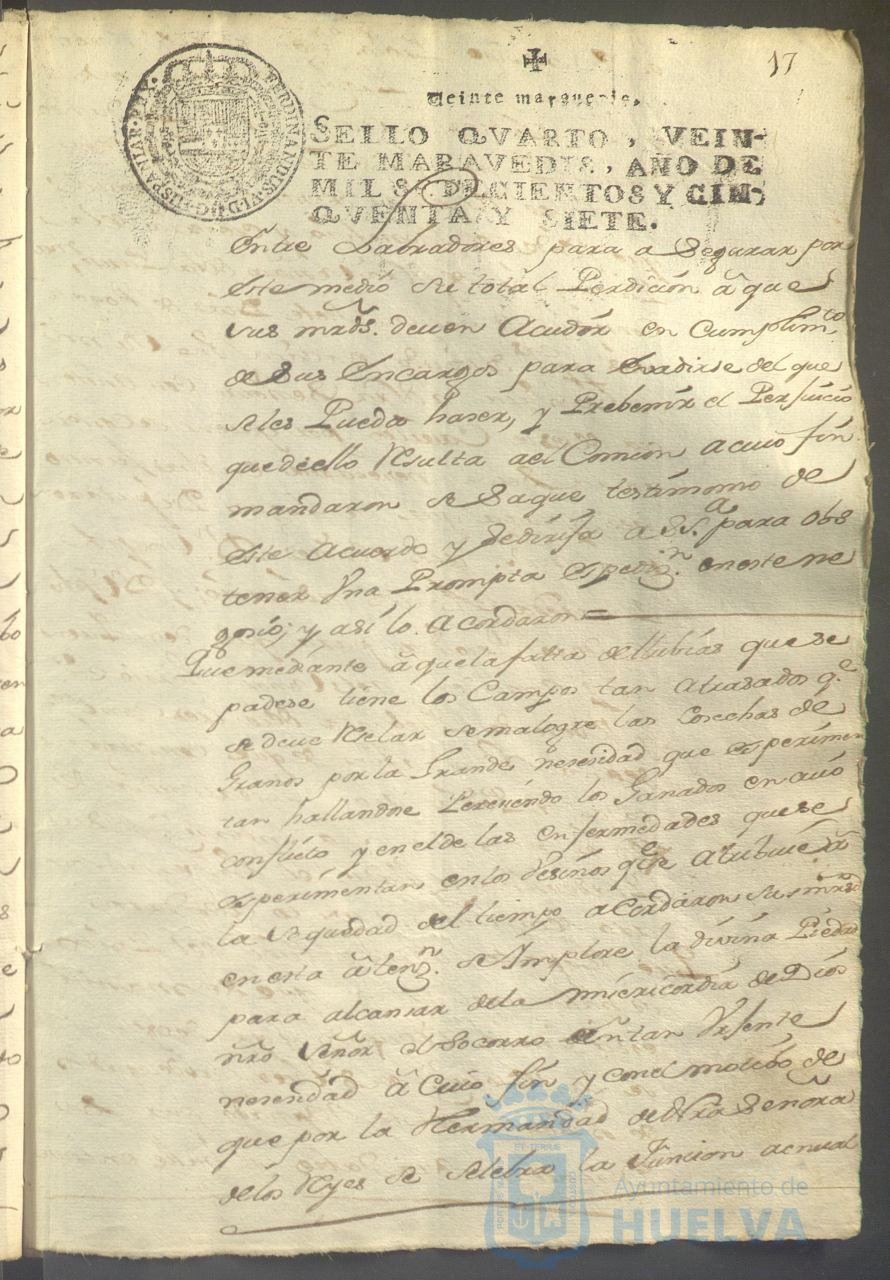 17
Veinte maravedis.
SELLO QVARTO, VEIN-
TE MARAVEDIS, AÑO DE
MIL SETECIENTOS Y CIN-
QVENTA Y SIETE.
FERDINANDUS VI D.G. HISPANIAR. REX.
Entre Labradores para a Segurar por
este medio su total Perdicion â que
sus mrds. deven Acudir en Cumplimto
de Sus Encargos para Evadirse del que
seles Pueda haser, y Prebenir el Perjuicio
que de ello Resulta ael Comun acuio fin
mandaron se Saque testimonio de
este Acuerdo y se dirija a S.Sa. para obs
tener Una Prompta espedizn. en este ne
gosio; y asi lo acordaron =
Que mediante â que la falta de llubias que se
padese tiene los Campos tan Atrasados qe.
se deve Reselar se malogre las Cosechas de
Granos por la Grande nesesidad que esperimen
tan hallandose Pereciendo los Ganados en cuio
conflicto y en el de las enfermedades que se
esperimentan en los Vesinos qe. atribuie â
la sequedad del tiempo acordaron sus mrds
en esta âtenzn. se Ymplore la divina Piedad
para alcansar de la misericordia de Dios
nro Señor el Socorro en tan Urjente
nesesidad â Cuio fin y con el motibo de
que por la Hermandad de Nra Señora
de los Reyes se selebra la Funcion acnual
Ayuntamiento de
HUELVA